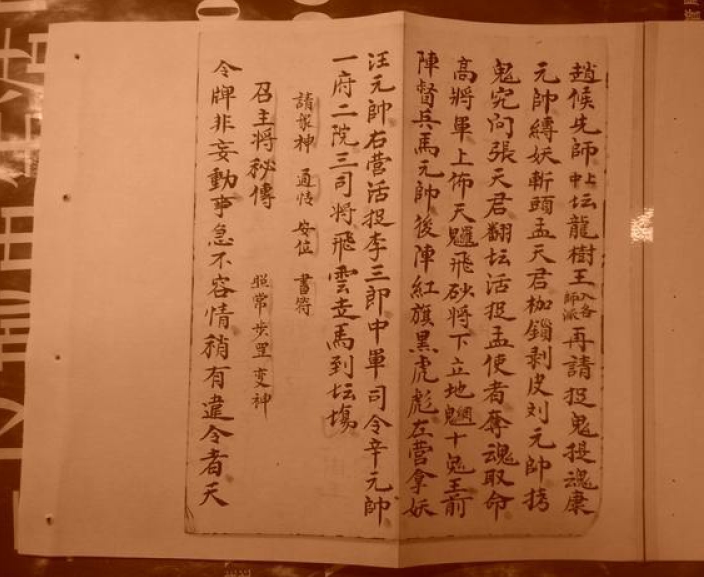 趙候先師中上坛龍樹王入各師派再請捉鬼捉魂康
元帥縛妖斬頭孟天君枷鎖剥皮刘元帥拷
鬼究问張天君翻坛活捉孟使者奪魂取命
高將軍上佈天羅飛砂將下立地網十鬼王前
陣督兵馬元帥後陣紅旗黑虎彪左营拿妖
汪元帥右营活捉李三郎中軍司令辛元帥
一府二院三司將飛雲走馬到坛場
請眾神 通忮 安位 書符
召主將秘傳 照常步罡变神
令牌非妄動事急不容情稍有違令者天